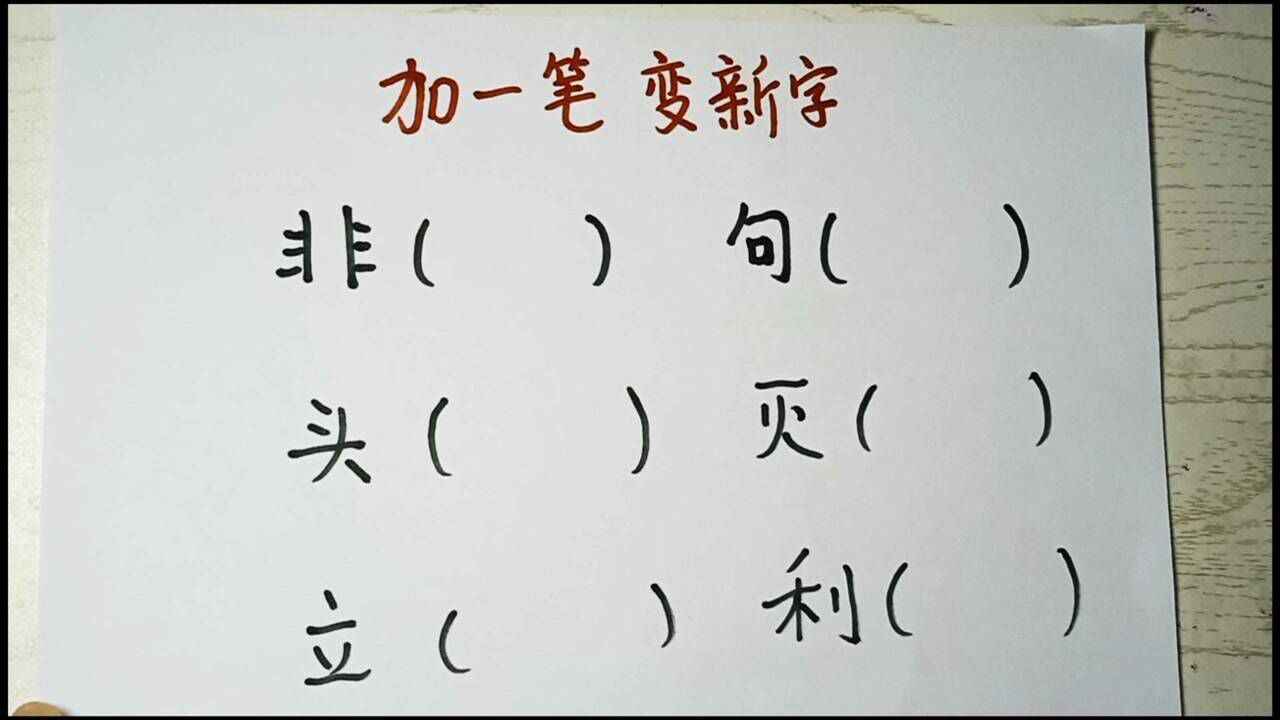 加一笔 变新字
非( ) 句( )
头( ) 灭( )
立( ) 利( )